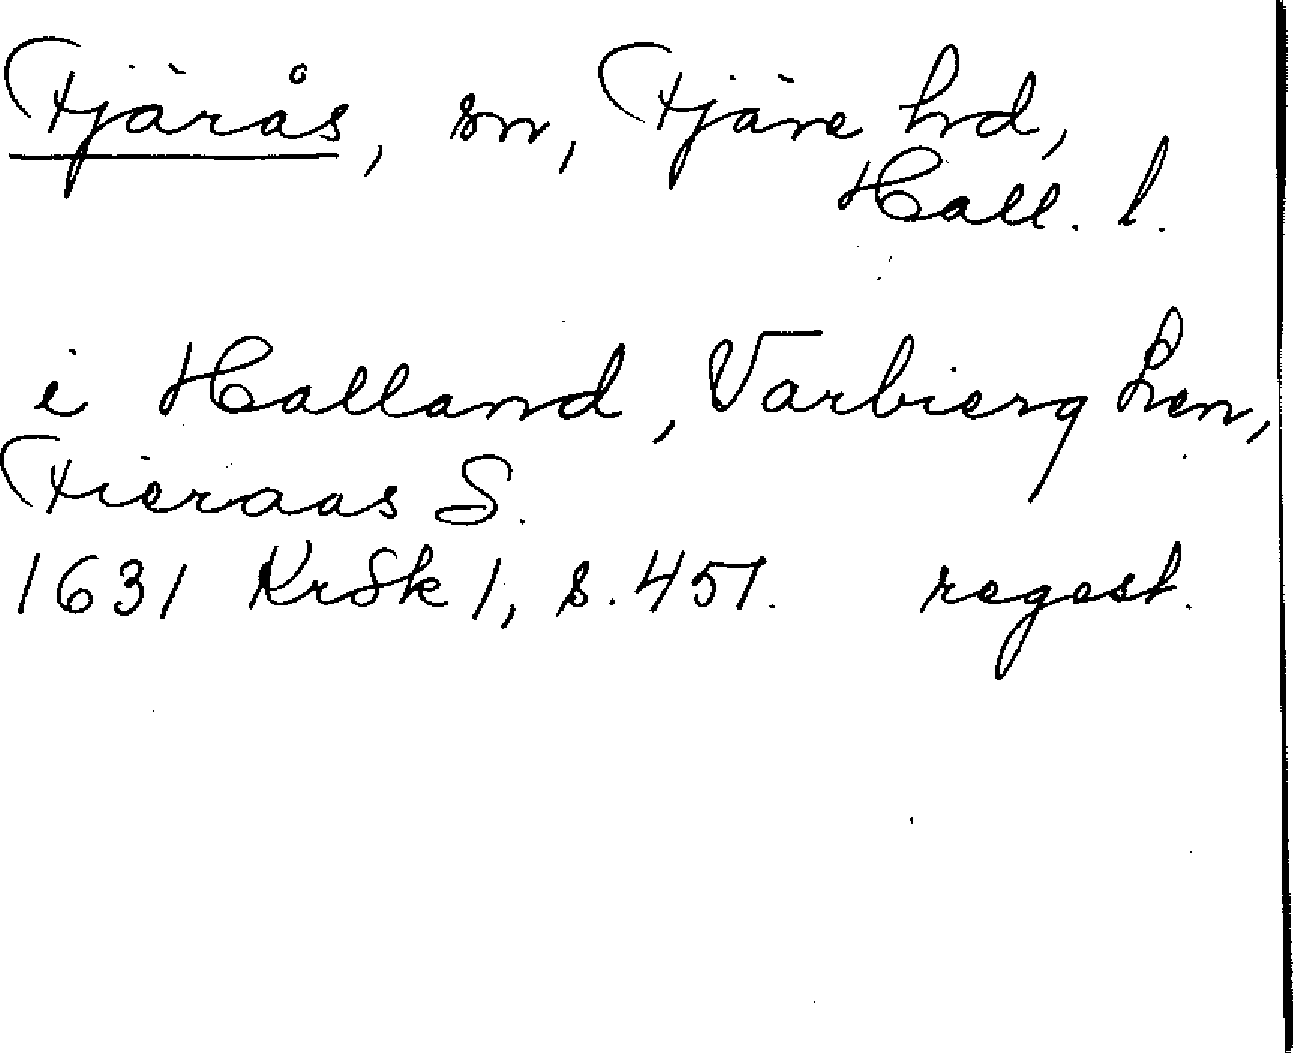 Fjärås, sn, Fjäre hd,
Hall. l.
i Halland, Varbierg Len,
Fieraas S.
1631 KrSk 1, s. 451. regest.